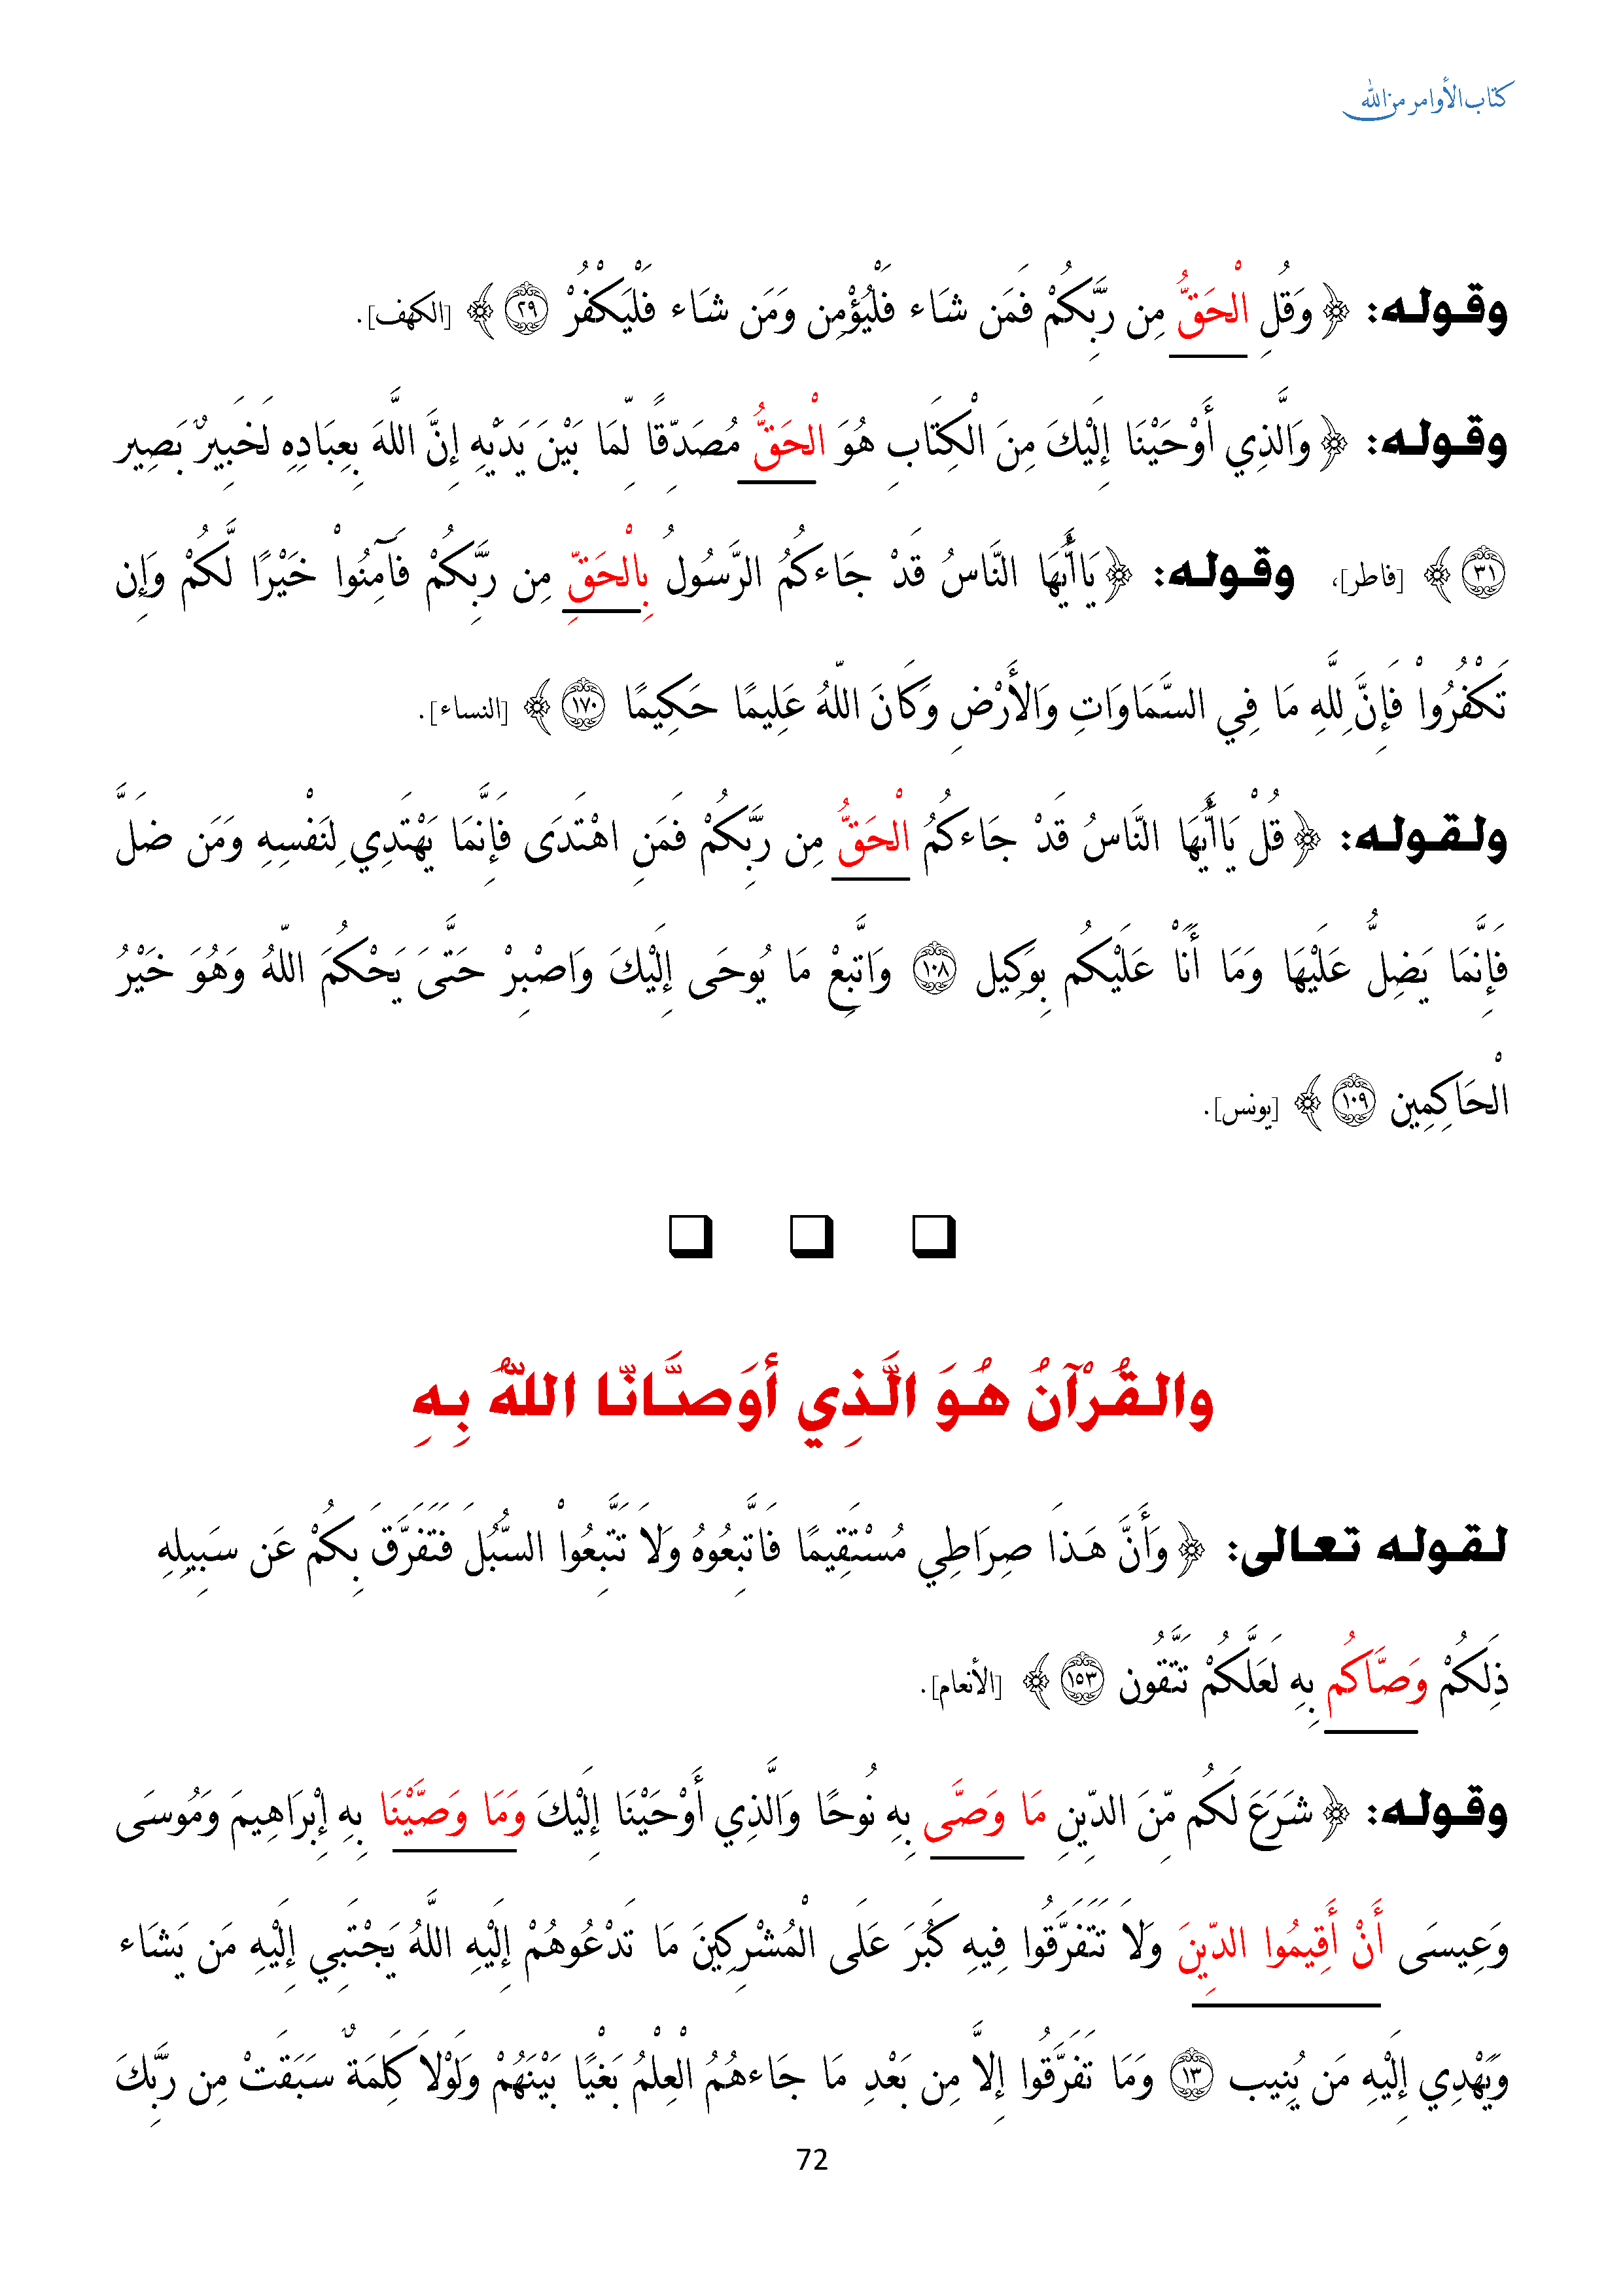 كتاب الأوامر من الله
وقـولـه: ﴿ وَقُلِ الْحَقُّ مِن رَّبِّكُمْ فَمَن شَاء فَلْيُؤْمِن وَمَن شَاء فَلْيَكْفُرْ ٢٩ ﴾ [الكهف].
وقـولـه: ﴿ وَالَّذِي أَوْحَيْنَا إِلَيْكَ مِنَ الْكِتَابِ هُوَ الْحَقُّ مُصَدِّقًا لِّمَا بَيْنَ يَدَيْهِ إِنَّ اللَّهَ بِعِبَادِهِ لَخَبِيرٌ بَصِير
٣١ ﴾ [فاطر]، وقـولـه: ﴿ يَاأَيُّهَا النَّاسُ قَدْ جَاءكُمُ الرَّسُولُ بِالْحَقِّ مِن رَّبِّكُمْ فَآمِنُواْ خَيْرًا لَّكُمْ وَإِن
تَكْفُرُواْ فَإِنَّ لِلَّهِ مَا فِي السَّمَاوَاتِ وَالأَرْضِ وَكَانَ اللّهُ عَلِيمًا حَكِيمًا ١٧٠ ﴾ [النساء].
ولـقـولـه: ﴿ قُلْ يَاأَيُّهَا النَّاسُ قَدْ جَاءكُمُ الْحَقُّ مِن رَّبِّكُمْ فَمَنِ اهْتَدَى فَإِنَّمَا يَهْتَدِي لِنَفْسِهِ وَمَن ضَلَّ
فَإِنَّمَا يَضِلُّ عَلَيْهَا وَمَا أَنَاْ عَلَيْكُم بِوَكِيل ١٠٨ وَاتَّبِعْ مَا يُوحَى إِلَيْكَ وَاصْبِرْ حَتَّىَ يَحْكُمَ اللّهُ وَهُوَ خَيْرُ
الْحَاكِمِين ١٠٩ ﴾ [يونس].
❑ ❑ ❑
والـقُـرْآنُ هُـوَ الَّـذِي أوَصـَّـانّـا اللهُ بِـهِ
لـقـولـه تـعـالى: ﴿ وَأَنَّ هَـذَا صِرَاطِي مُسْتَقِيمًا فَاتَّبِعُوهُ وَلاَ تَتَّبِعُواْ السُّبُلَ فَتَفَرَّقَ بِكُمْ عَن سَبِيلِهِ
ذَلِكُمْ وَصَّاكُم بِهِ لَعَلَّكُمْ تَتَّقُون ١٥٣ ﴾ [الأنعام].
وقـولـه: ﴿ شَرَعَ لَكُم مِّنَ الدِّينِ مَا وَصَّى بِهِ نُوحًا وَالَّذِي أَوْحَيْنَا إِلَيْكَ وَمَا وَصَّيْنَا بِهِ إِبْرَاهِيمَ وَمُوسَى
وَعِيسَى أَنْ أَقِيمُوا الدِّينَ وَلاَ تَتَفَرَّقُوا فِيهِ كَبُرَ عَلَى الْمُشْرِكِينَ مَا تَدْعُوهُمْ إِلَيْهِ اللَّهُ يَجْتَبِي إِلَيْهِ مَن يَشَاء
وَيَهْدِي إِلَيْهِ مَن يُنِيب ١٣ وَمَا تَفَرَّقُوا إِلاَّ مِن بَعْدِ مَا جَاءهُمُ الْعِلْمُ بَغْيًا بَيْنَهُمْ وَلَوْلاَ كَلِمَةٌ سَبَقَتْ مِن رَّبِّكَ
72